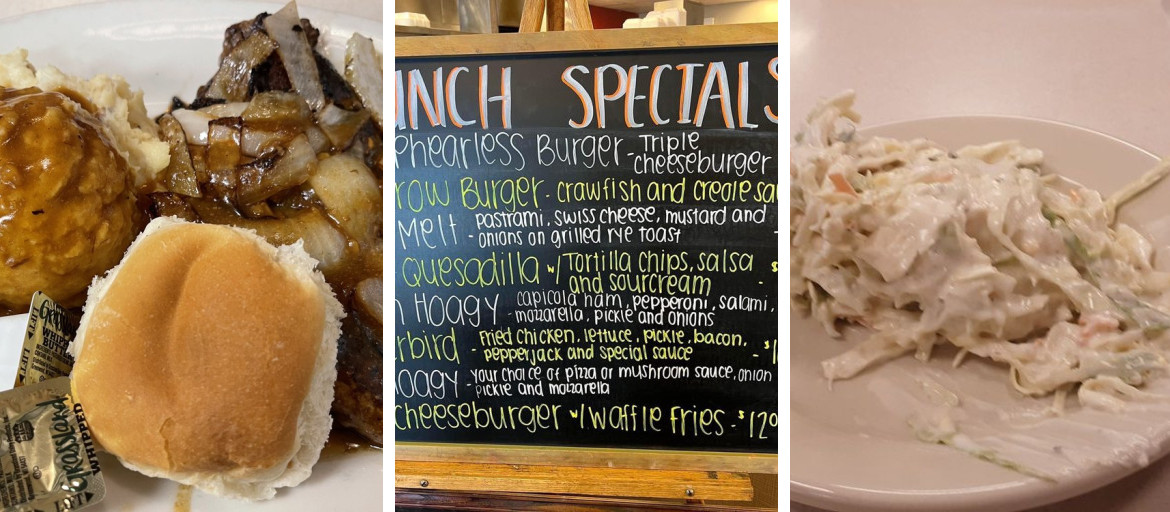 LIFT
Grassland
WHIPPED
LIFT
UNCH SPECIALS
Phearless Burger - Triple
cheeseburger
row Burger - crawfish and creole sa
Melt - Pastrami, swiss cheese, mustard and
onions on grilled rye toast
Quesadilla w/ Tortilla chips, salsa
and sourcream
Hoagy - capicola ham, pepperoni, salami,
mozzarella, pickle and onions
rbird - Fried chicken, lettuce, pickle, bacon,
pepperjack and special sauce
oagy - your choice of pizza or mushroom sauce, onion
pickle and mozzarella
cheeseburger w/ waffle fries - $12